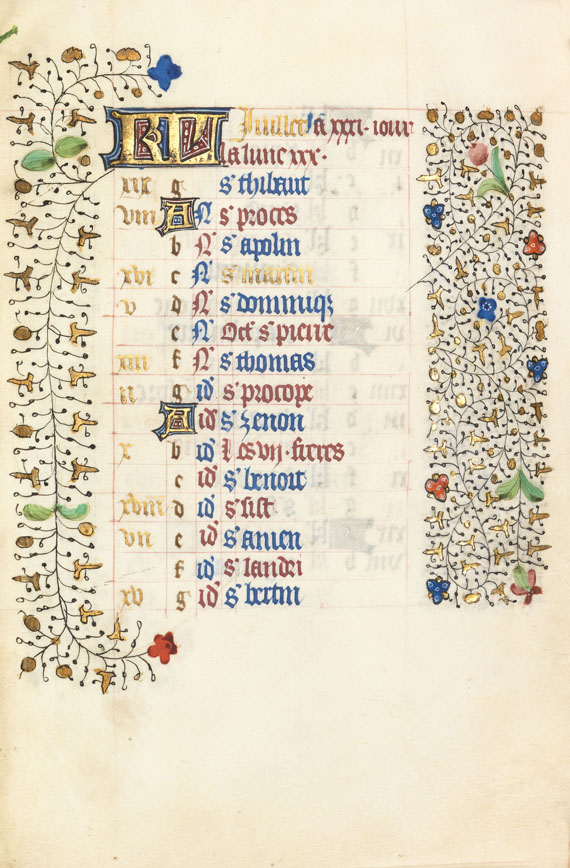 KL Juillet a xxxi · iours
la lune xxx ·
xix g s' thibaut
viii A N s' proces
b N s' apolin
xvi c N s' martin
v d N s' dominiq
e N Oct s' pierre
xiii f N s' thomas
ii g id s' procope
A id s' zenon
x b id Les vii · freres
c id s' benoit
xviii d id s' sist
vii e id s' anien
f id s' landri
xv g id s' bertin